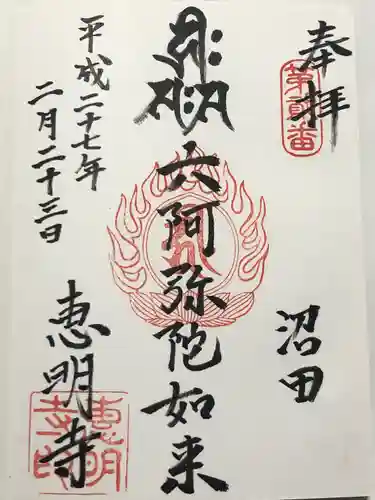 奉拝
第貳番
沼田
六阿弥陀如来
平成二十七年
二月二十三日
恵明寺
恵明寺印